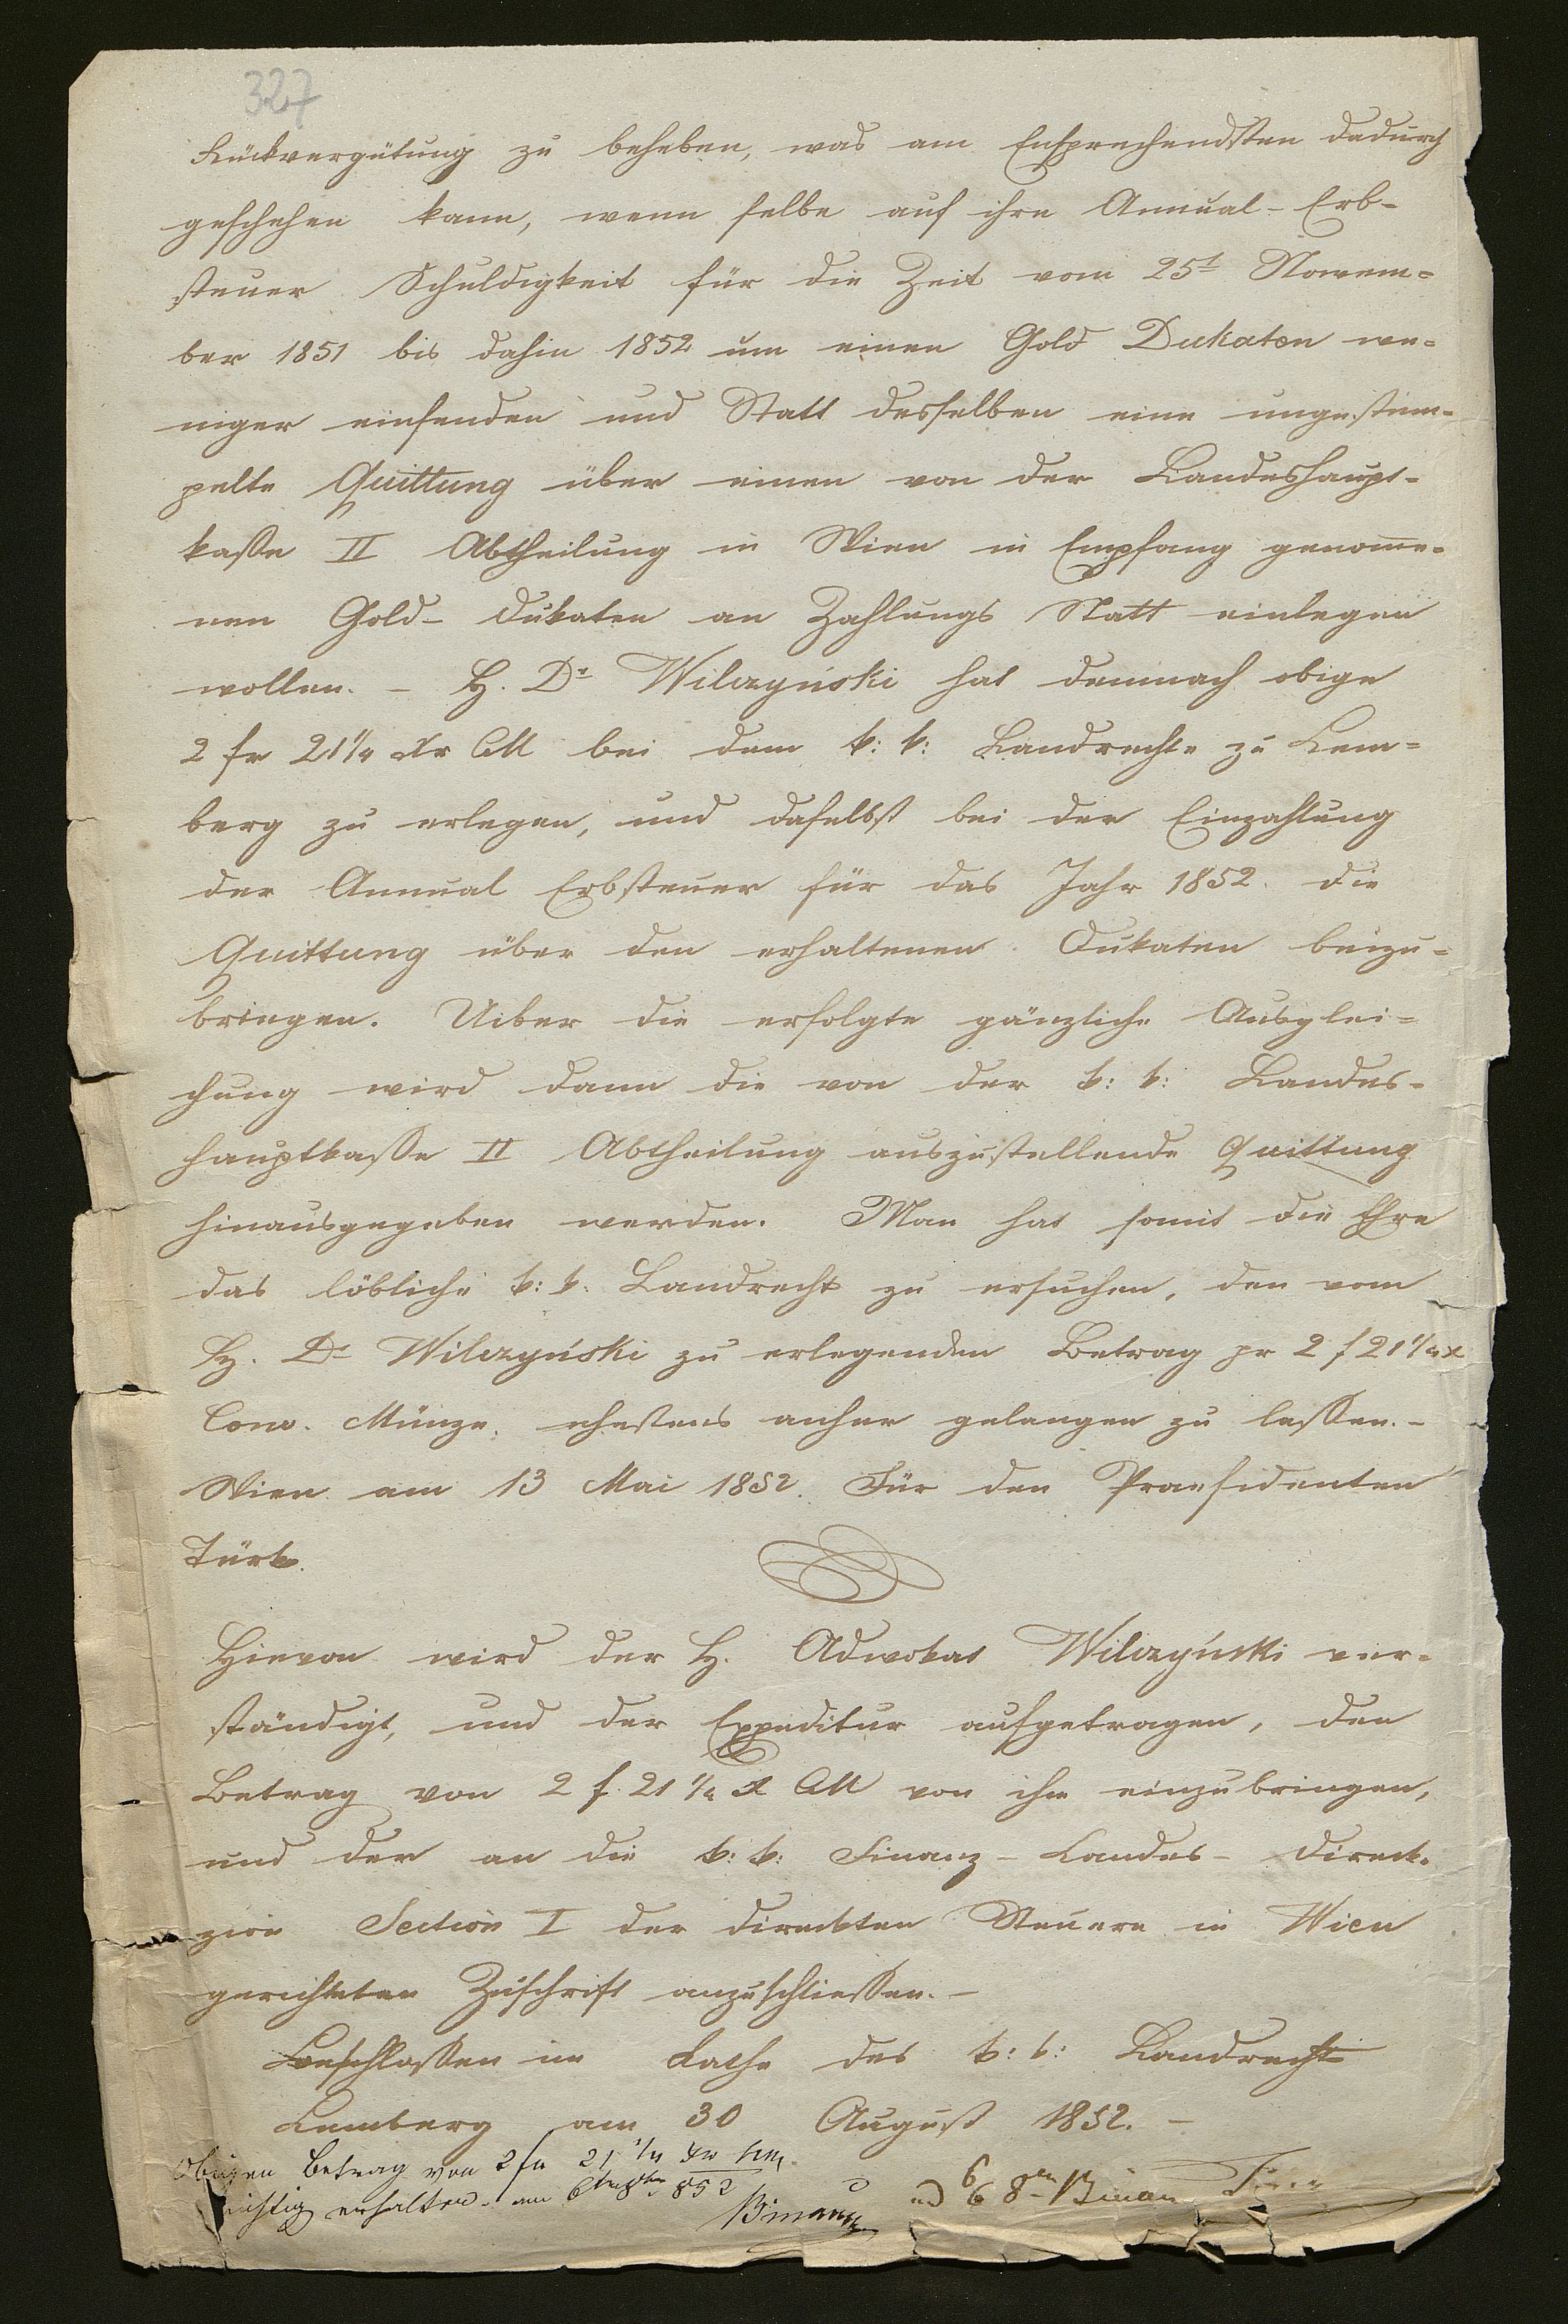 327
Rückvergütung zu beheben, was am Entsprechendsten dadurch
geschehen kann, wenn selbe auf ihre Annual-Erb-
steuer Schuldigkeit für die Zeit vom 25t Novem=
ber 1851 bis dahin 1852 um einen Gold Dukaten we=
niger einsenden und Statt desselben eine ungestem=
pelte Quittung über einen von der Landeshaupt-
kasse II Abtheilung in Wien in Empfang genomme=
nen Gold-Dukaten an Zahlungs Statt einlegen
wollen. – H. Dr Wilczyński hat demnach obige
2 fr 21 1/4 xr CM bei dem k: k: Landrechte zu Lem=
berg zu erlegen, und daselbst bei der Einzahlung
der Annual Erbsteuer für das Jahr 1852. die
Quittung über den erhaltenen Dukaten beizu=
bringen. Uiber die erfolgte gänzliche Ausglei=
chung wird dann die von der k: k: Landes-
hauptkasse II Abtheilung auszustellende Quittung
hinausgegeben werden. Man hat somit die Ehre
das löbliche k: k: Landrecht zu ersuchen, den vom
H. Dr Wilczyński zu erlegenden Betrag pr 2 f 21 1/4 x
Conv. Münze, ehestens anher gelangen zu lassen. –
Wien am 13 Mai 1852. Für den Praesidenten
Türk.
Hievon wird der H. Advokat Wilczyński ver=
ständigt, und der Expeditur aufgetragen, den
Betrag von 2 f. 21 1/4 x CM von ihm einzubringen,
und der an die k: k: Finanz-Landes-Direck=
zion Section I der direckten Steuern in Wien
gerichteten Zuschrift anzuschliessen. –
Beschlossen im Rathe des k: k: Landrechts
Lemberg am 30 August 1852. –
Obigen Betrag von 2 fr 21 1/4 xr
richtig erhalten. am 6 852